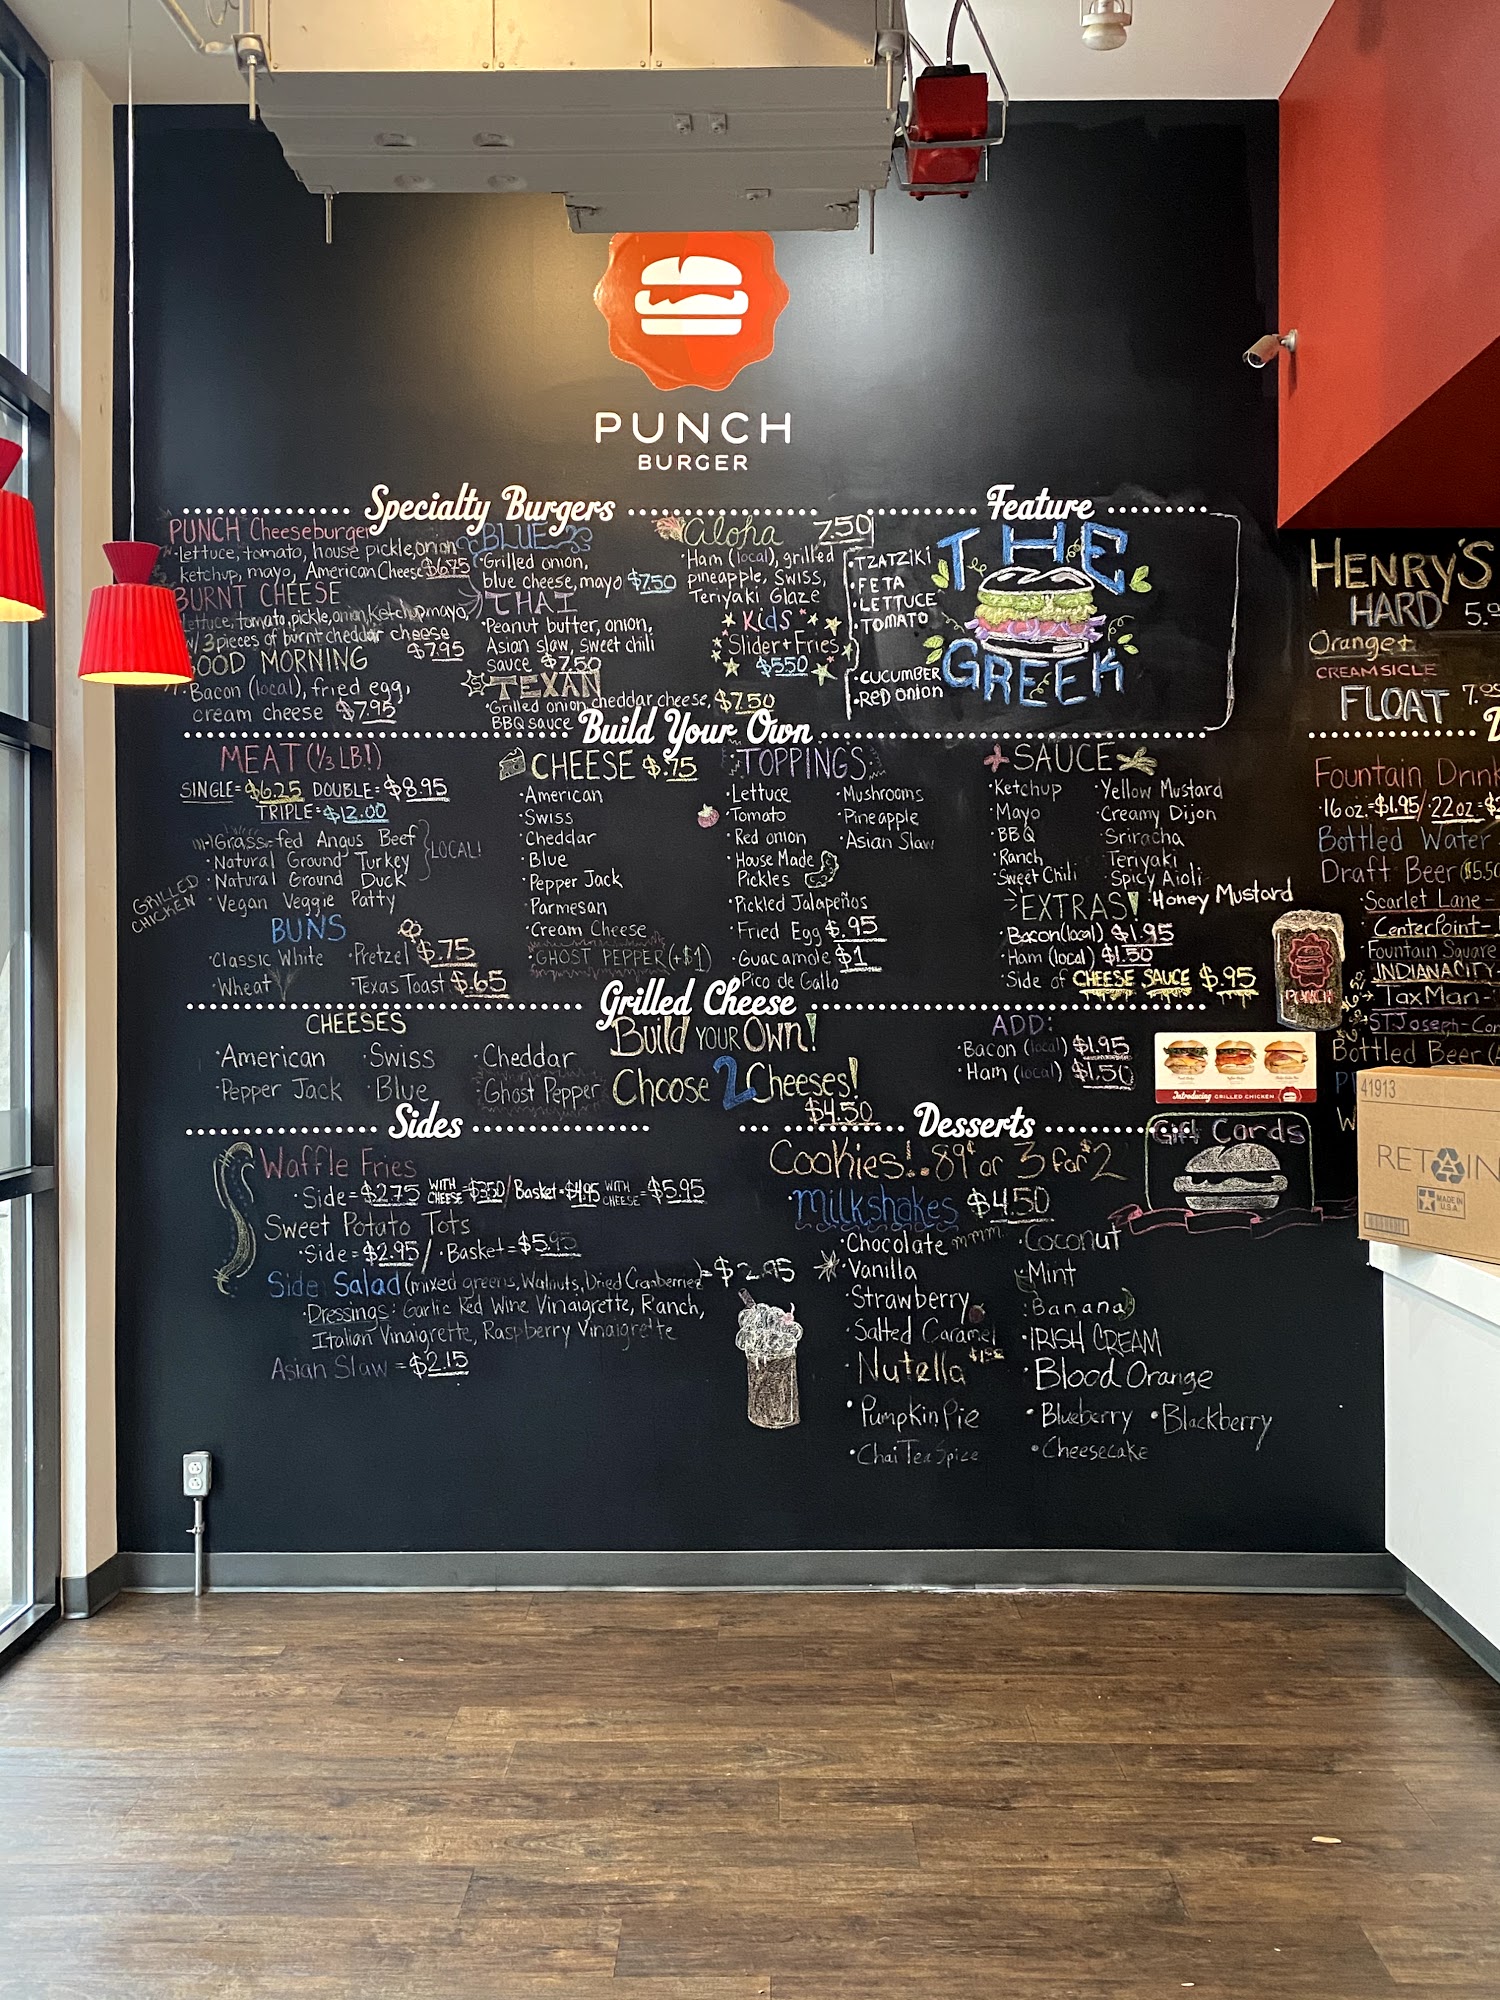 PUNCH
BURGER
Specialty Burgers
PUNCH Cheeseburger
lettuce, tomato, house pickle, onion
ketchup, mayo, American Cheese $6.75
BURNT CHEESE
lettuce, tomato, pickle, onion, ketchup, mayo,
w/ 3 pieces of burnt cheddar cheese
$7.95
GOOD MORNING
Bacon (local), fried egg,
cream cheese $7.95
BLUE
Grilled onion,
blue cheese, mayo $7.50
THAI
Peanut butter, onion,
Asian slaw, sweet chili
sauce $7.50
TEXAN
Grilled onion cheddar cheese, $7.50
BBQ sauce
Aloha 7.50
Ham (local), grilled
pineapple, Swiss,
Teriyaki Glaze
Kids
Slider + Fries
$5.50
Feature
THE
GREEK
TZATZIKI
FETA
LETTUCE
TOMATO
CUCUMBER
RED ONION
Build Your Own
MEAT (1/3 LB.!)
SINGLE = $6.25 DOUBLE = $8.95
TRIPLE = $12.00
Grass-fed Angus Beef
Natural Ground Turkey
Natural Ground Duck
LOCAL!
Vegan Veggie Patty
GRILLED
CHICKEN
BUNS
Classic White
Wheat
Pretzel $.75
Texas Toast $.65
CHEESE $.75
American
Swiss
Cheddar
Blue
Pepper Jack
Parmesan
Cream Cheese
GHOST PEPPER (+$1)
TOPPINGS
Lettuce
Tomato
Red onion
House Made
Pickles
Pickled Jalapeños
Fried Egg $.95
Guacamole $1
Pico de Gallo
Mushrooms
Pineapple
Asian Slaw
SAUCE
Ketchup
Mayo
BBQ
Ranch
Sweet Chili
Yellow Mustard
Creamy Dijon
Sriracha
Teriyaki
Spicy Aioli
Honey Mustard
EXTRAS!
Bacon (local) $1.95
Ham (local) $1.50
Side of CHEESE SAUCE $.95
Grilled Cheese
CHEESES
American
Swiss
Cheddar
Pepper Jack
Blue
Ghost Pepper
Build YOUR Own!
Choose 2 Cheeses!
$4.50
ADD:
Bacon (local) $1.95
Ham (local) $1.50
Introducing GRILLED CHICKEN
Sides
Waffle Fries
Side = $2.75 WITH CHEESE = $3.50 / Basket = $4.95 WITH CHEESE = $5.95
Sweet Potato Tots
Side = $2.95 / Basket = $5.95
Side Salad (mixed greens, Walnuts, Dried Cranberries) = $2.95
Dressings: Garlic Red Wine Vinaigrette, Ranch,
Italian Vinaigrette, Raspberry Vinaigrette
Asian Slaw = $2.15
Desserts
Cookies!. 89¢ or 3 for $2
Milkshakes $4.50
Chocolate mmm.
Vanilla
Strawberry
Salted Caramel
Nutella
Pumpkin Pie
Chai Tea Spice
Coconut
Mint
Banana
IRISH CREAM
Blood Orange
Blueberry
Blackberry
Cheesecake
Gift Cards
HENRY'S
HARD
Orange +
CREAMSICLE
FLOAT
Fountain Drink
16 oz. = $1.95 / 22 oz =
Bottled Water
Draft Beer ($5.50
Scarlet Lane -
CenterPoint -
Fountain Square
INDIANA CITY -
TaxMan -
ST. Joseph -
Bottled Beer
PUNCH
41913
RETAIN
MADE IN
U.S.A.